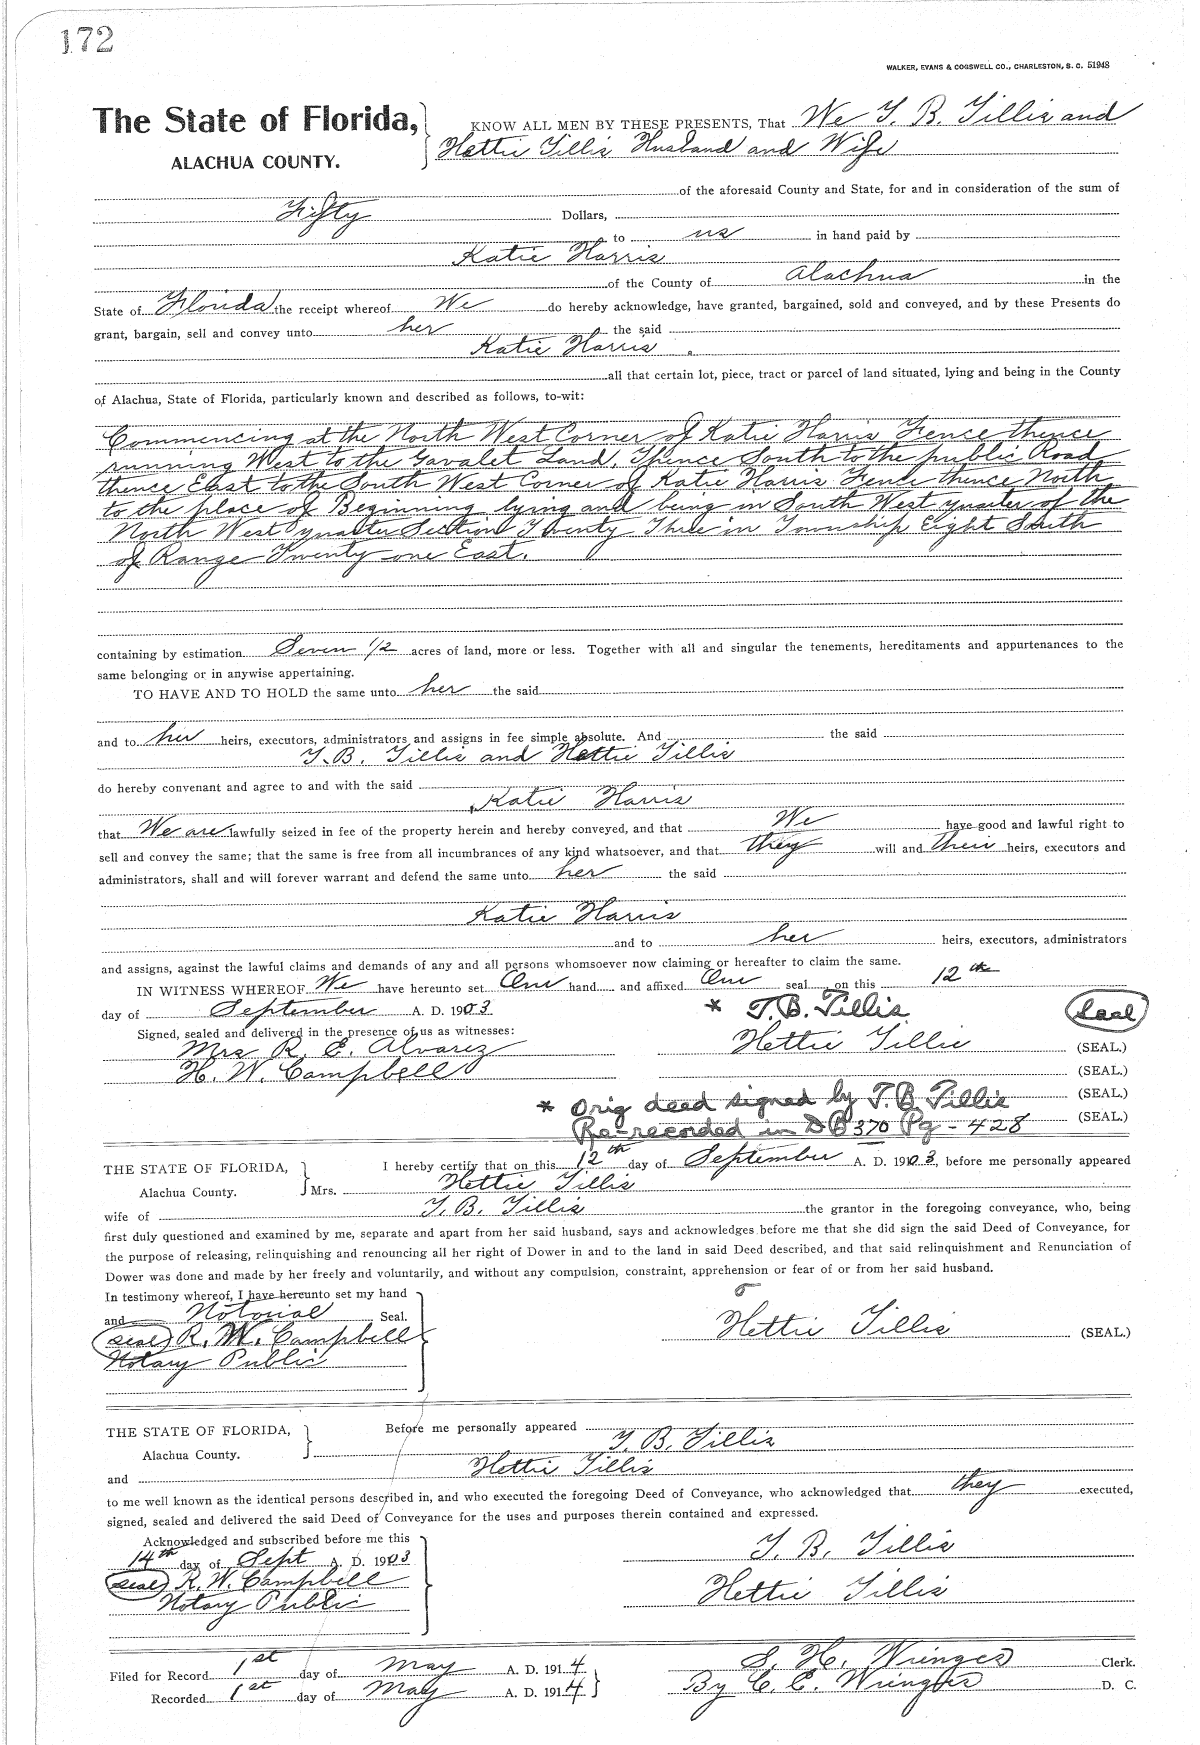 172
WALKER, EVANS & COGSWELL CO., CHARLESTON, S. C. 51948
The State of Florida,
ALACHUA COUNTY.
KNOW ALL MEN BY THESE PRESENTS, That We T. B. Tillis and
Hettie Tillis Husband and Wife
of the aforesaid County and State, for and in consideration of the sum of
Fifty Dollars,
to us in hand paid by
Katie Harris
of the County of Alachua in the
State of Florida the receipt whereof We do hereby acknowledge, have granted, bargained, sold and conveyed, and by these Presents do
grant, bargain, sell and convey unto her the said
Katie Harris.
all that certain lot, piece, tract or parcel of land situated, lying and being in the County
of Alachua, State of Florida, particularly known and described as follows, to-wit:
Commencing at the North West Corner of Katie Harris Fence thence
running West to the Gavalet Land. Thence South to the public Road
thence East to the South West Corner of Katie Harris Fence thence North
to the place of Beginning lying and being in South West quarter of the
North West quarter Section Twenty Three in Township Eight South
of Range Twenty one East.
containing by estimation Seven 1/2 acres of land, more or less. Together with all and singular the tenements, hereditaments and appurtenances to the
same belonging or in anywise appertaining.
TO HAVE AND TO HOLD the same unto her the said
and to her heirs, executors, administrators and assigns in fee simple absolute. And the said
T. B. Tillis and Hettie Tillis
do hereby convenant and agree to and with the said
Katie Harris
that We are lawfully seized in fee of the property herein and hereby conveyed, and that We have good and lawful right to
sell and convey the same; that the same is free from all incumbrances of any kind whatsoever, and that they will and their heirs, executors and
administrators, shall and will forever warrant and defend the same unto her the said
Katie Harris
and to her heirs, executors, administrators
and assigns, against the lawful claims and demands of any and all persons whomsoever now claiming or hereafter to claim the same.
IN WITNESS WHEREOF We have hereunto set Our hand and affixed Our seal on this 12th
day of September A. D. 1903
* T. B. Tillis Seal
Signed, sealed and delivered in the presence of us as witnesses:
Mrs R. E. Alvarez Hettie Tillis (SEAL.)
H. W. Campbell (SEAL.)
* Orig deed signed by T. B. Tillis (SEAL.)
Re-recorded in DB 370 Pg - 428 (SEAL.)
THE STATE OF FLORIDA,
Alachua County.
I hereby certify that on this 12th day of September A. D. 1903, before me personally appeared
Mrs. Hettie Tillis
wife of T. B. Tillis the grantor in the foregoing conveyance, who, being
first duly questioned and examined by me, separate and apart from her said husband, says and acknowledges before me that she did sign the said Deed of Conveyance, for
the purpose of releasing, relinquishing and renouncing all her right of Dower in and to the land in said Deed described, and that said relinquishment and Renunciation of
Dower was done and made by her freely and voluntarily, and without any compulsion, constraint, apprehension or fear of or from her said husband.
In testimony whereof, I have hereunto set my hand
and Notorial Seal.
seal R. W. Campbell
Notary Public
Hettie Tillis (SEAL.)
THE STATE OF FLORIDA,
Alachua County.
Before me personally appeared
T. B. Tillis
and Hettie Tillis
to me well known as the identical persons described in, and who executed the foregoing Deed of Conveyance, who acknowledged that they executed,
signed, sealed and delivered the said Deed of Conveyance for the uses and purposes therein contained and expressed.
Acknowledged and subscribed before me this
14th day of Sept A. D. 1903
seal R. W. Campbell
Notary Public
T. B. Tillis
Hettie Tillis
Filed for Record 1st day of May A. D. 1914
Recorded 1st day of May A. D. 1914
S. H. Wienges Clerk.
By C. E. Wienges D. C.